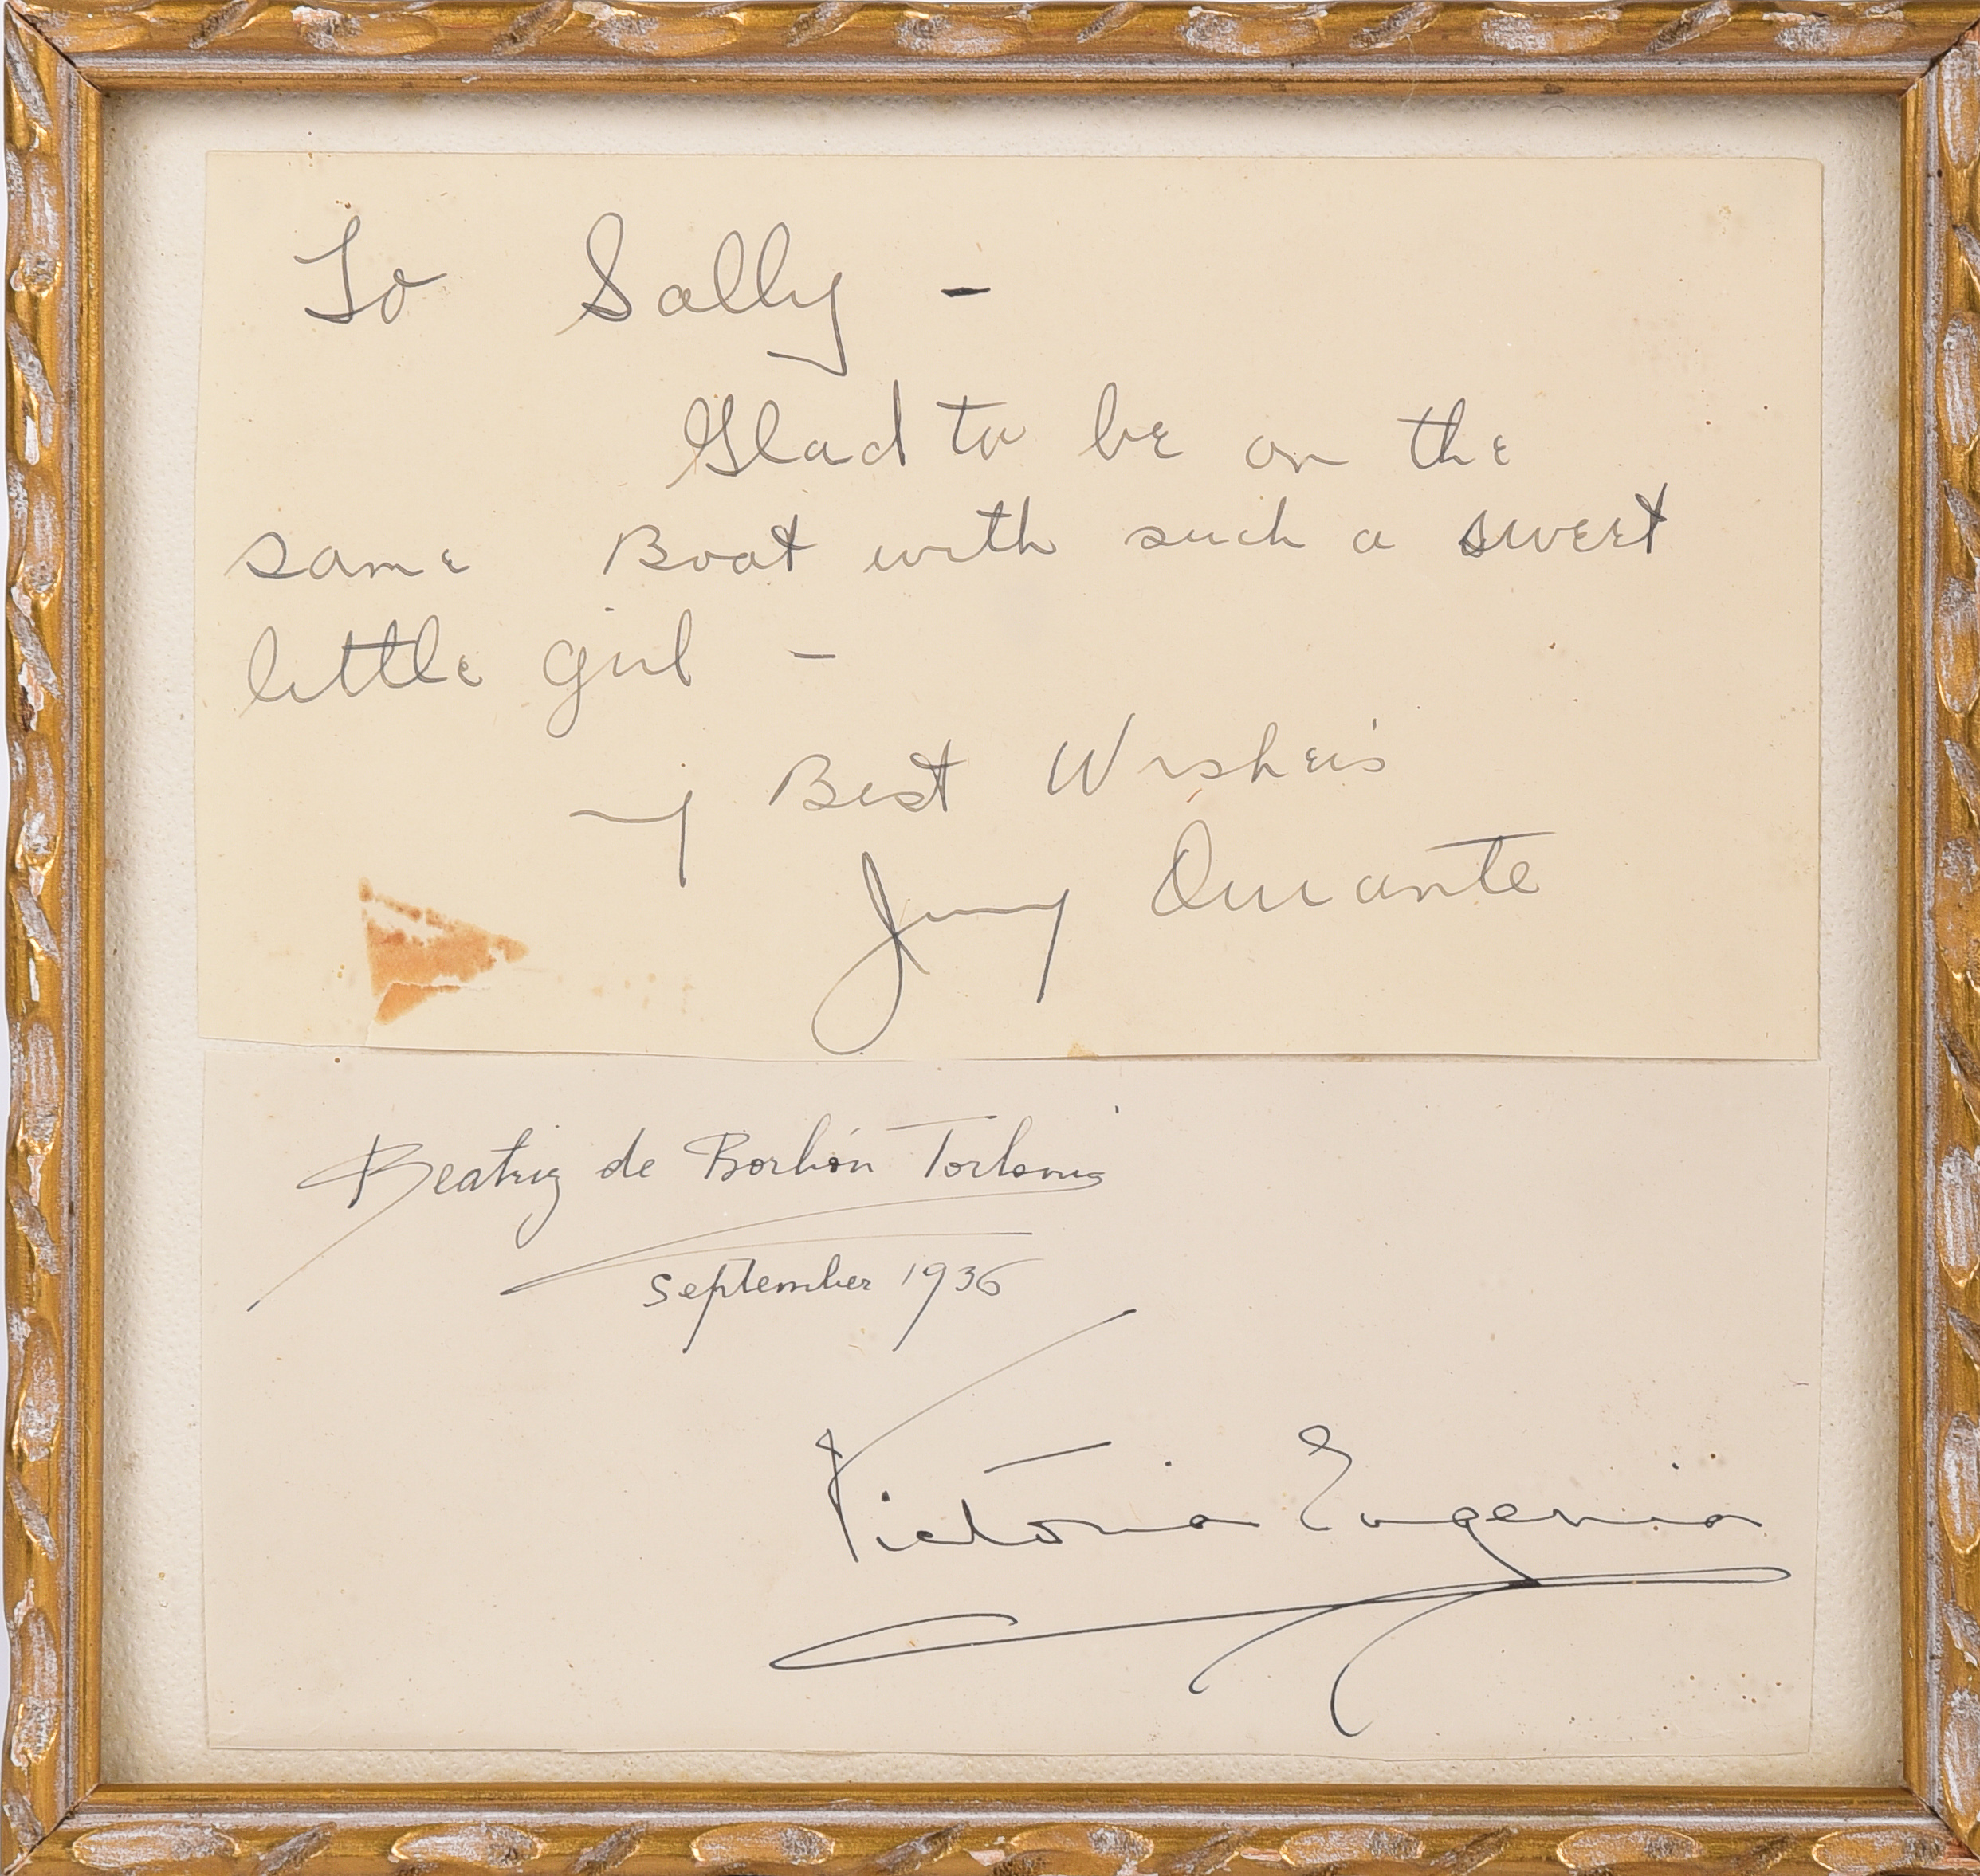 To Sally -
Glad to be on the
same Boat with such a sweet
little girl -
my Best Wishes
Jimmy Durante
Beatriz de Borbón Torlonia
September 1936
Victoria Eugenia